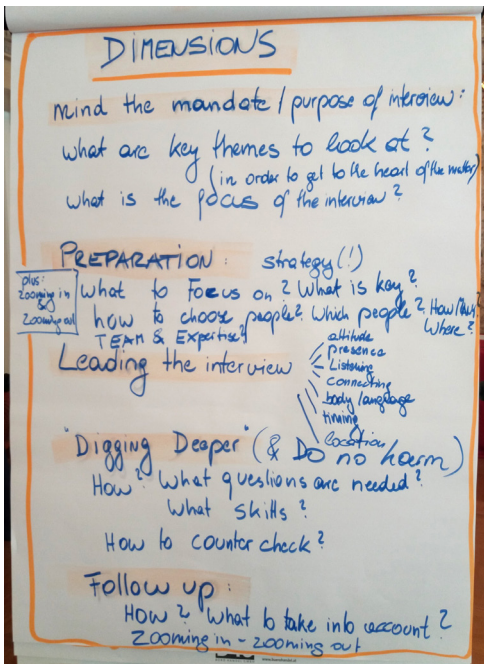 DIMENSIONS
mind the mandate / purpose of interview:
what are key themes to look at?
(in order to get to the heart of the matter)
what is the focus of the interview?
PREPARATION: strategy (!)
plus:
zooming in
&
zooming out
what to Focus on? What is key?
how to choose people? Which people? How Many?
Where?
TEAM & Expertise?
Leading the interview
attitude
presence
Listening
connecting
body language
timing
location
"Digging Deeper" (& Do no harm)
How? What questions are needed?
What skills?
How to counter check?
Follow up:
How? What to take into account?
Zooming in - zooming out